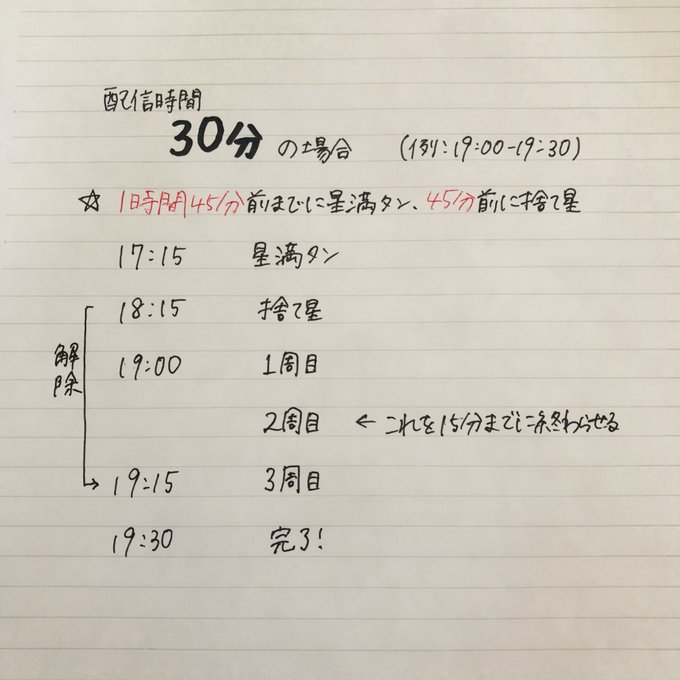 配信時間
30分の場合 (例:19:00-19:30)
☆ 1時間45分前までに星満タン、45分前に捨て星
17:15 星満タン
18:15 捨て星
解除
19:00 1周目
2周目 ← これを15分までに終わらせる
19:15 3周目
19:30 完了!